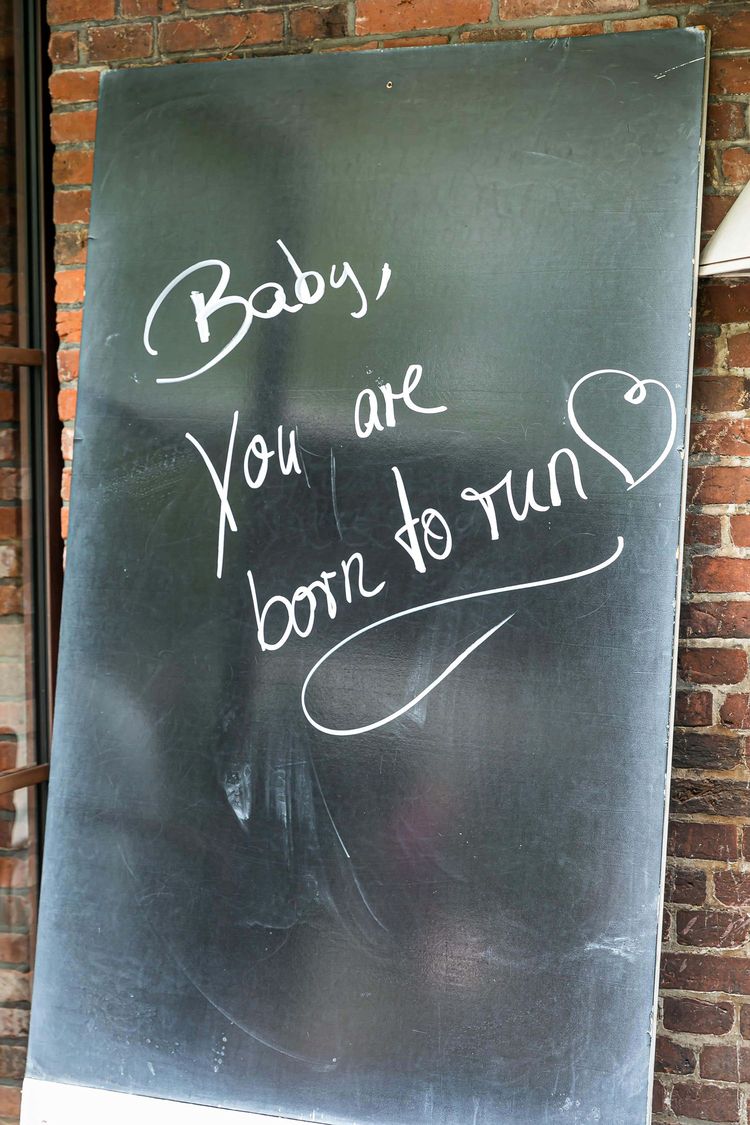 Baby,
You are
born to run